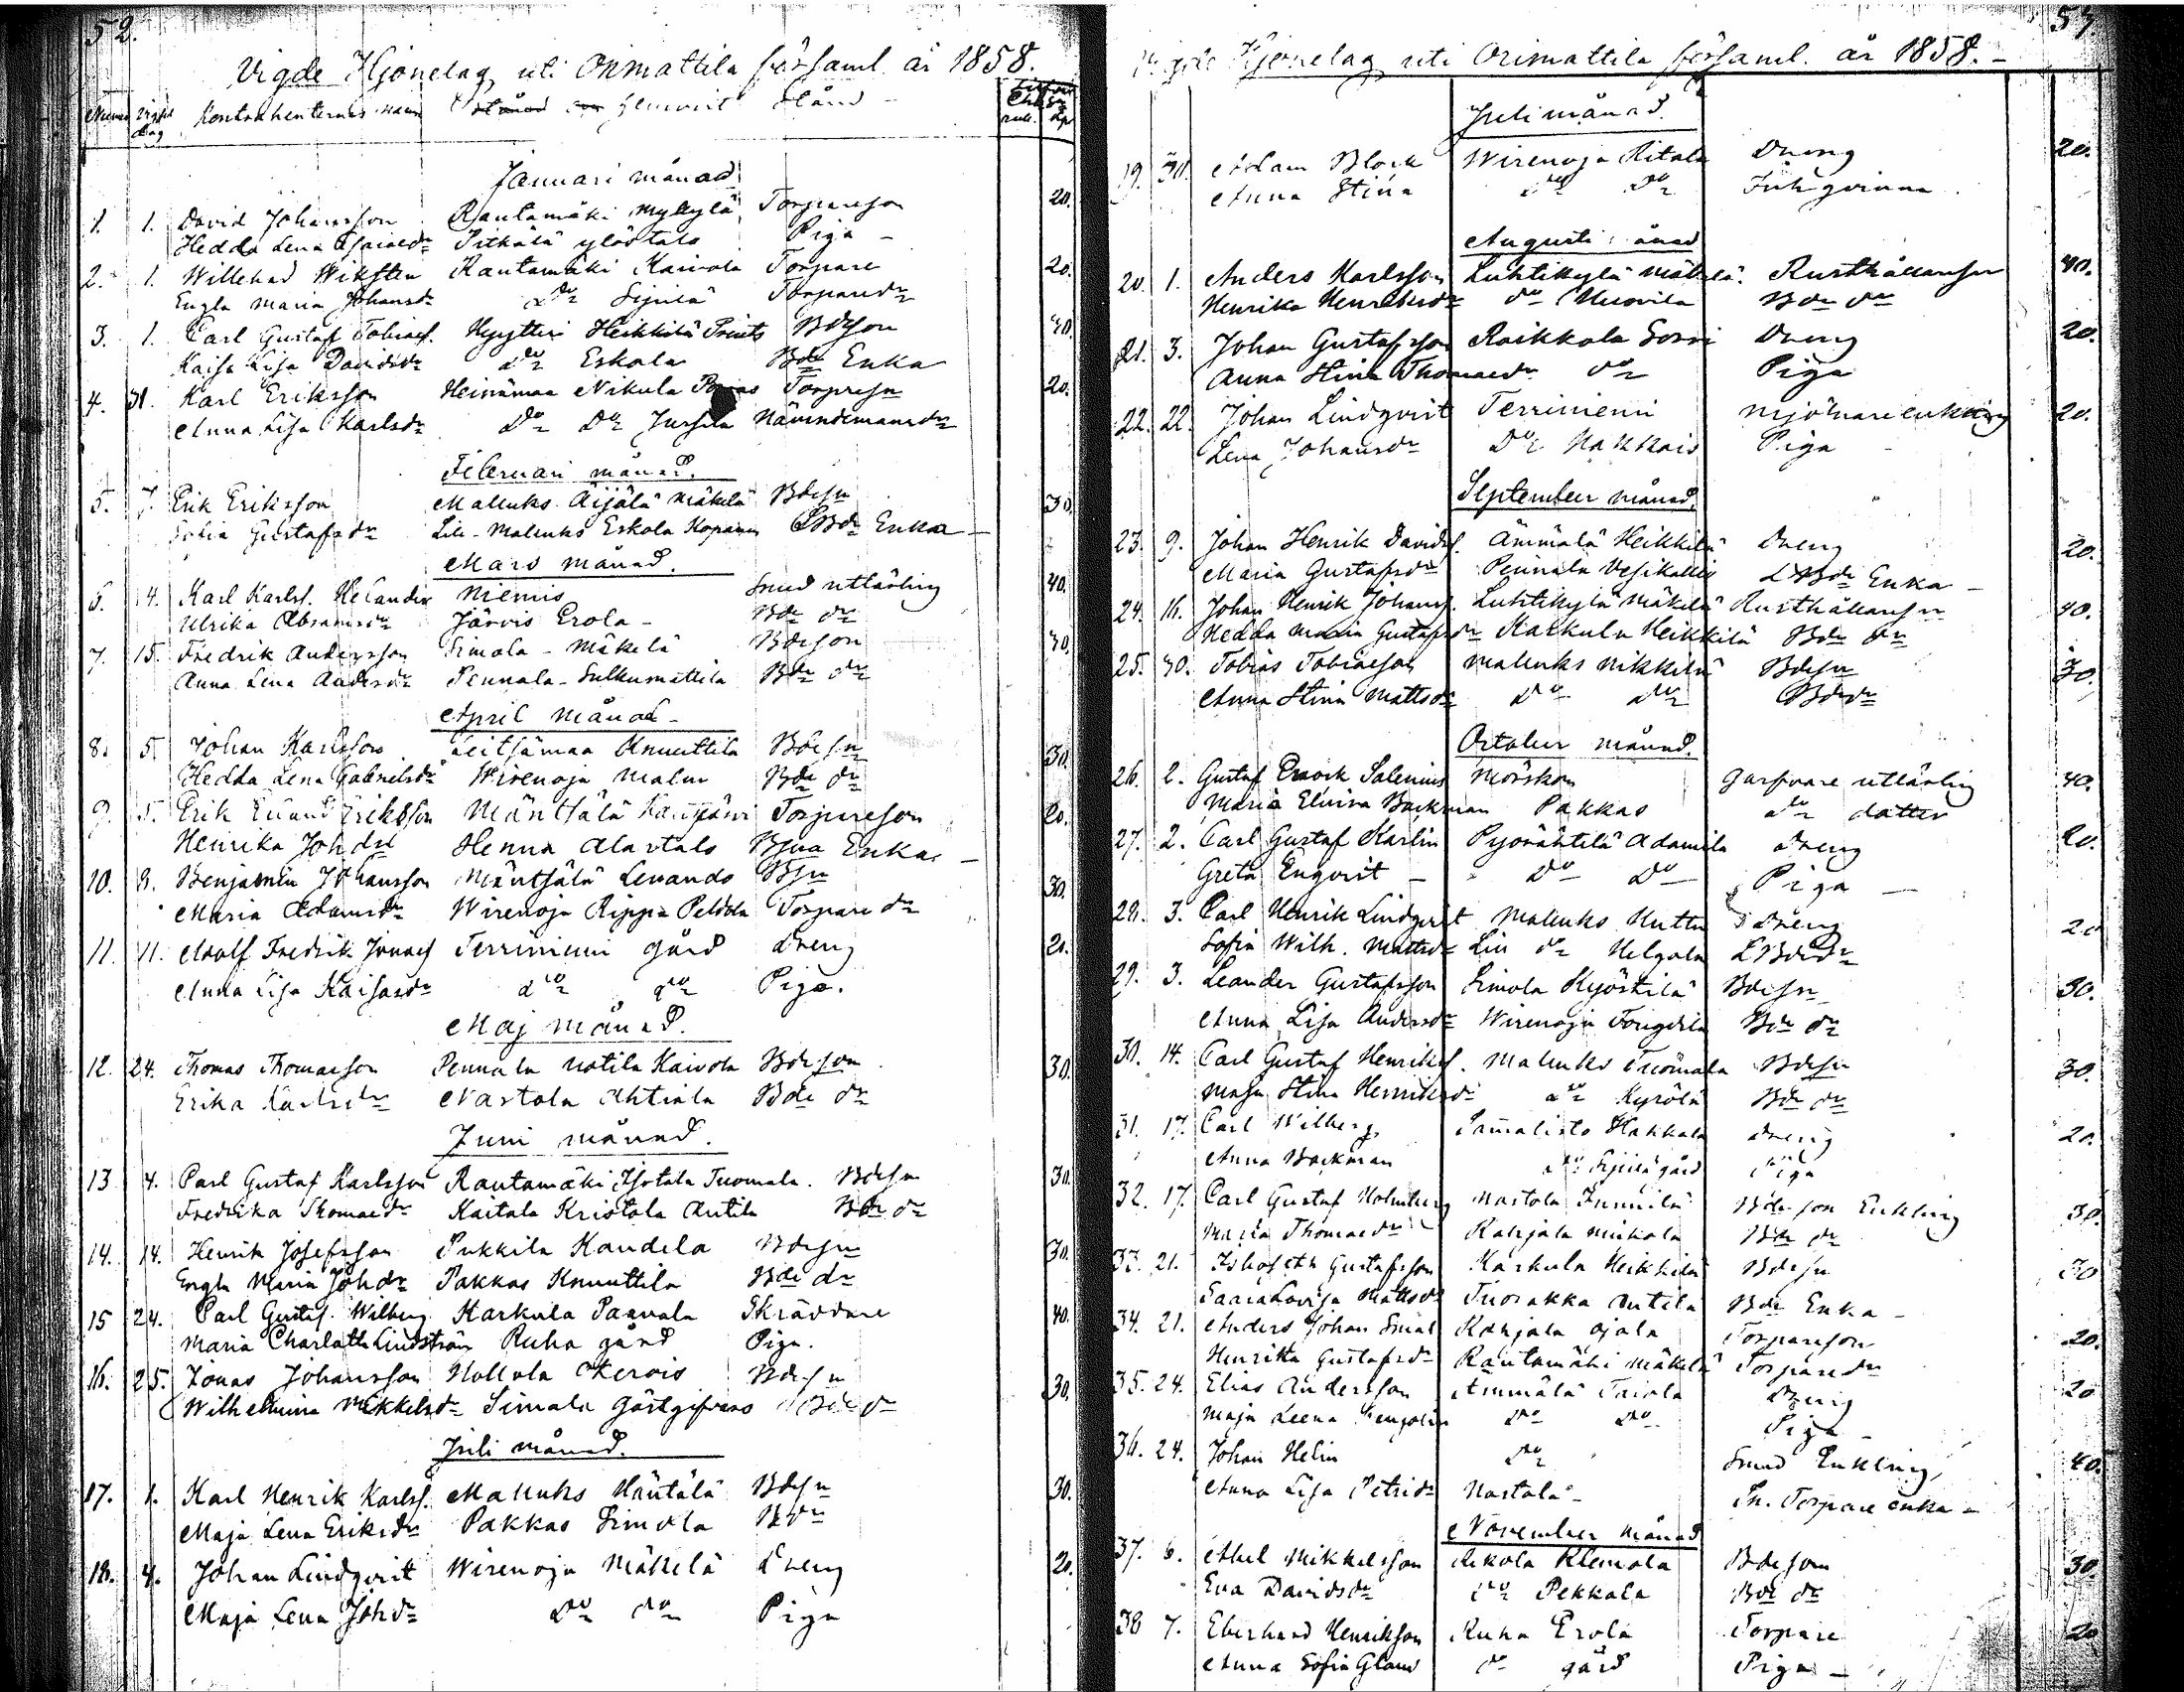 52.
Vigde Hjonelag uti Orimattila församl. år 1858.
Vigsel dag Kontrahenternas namn hemvist stånd
Januari månad
1. 1. David Johansson Rautamäki Myllylä Torpareson 20.
Hedda Lena Pitkälä ylöstalo Piga
2. 1. Willehad Wiksten Rautamäki Kaivola Torpare 20.
Engla Maria Johansdr do Sipilä Torparedr
3. 1. Carl Gustaf Tobiaes. Heikkilä Bdeson 30.
Kaisa Lisa Davidsdr do Eskola Bde Enka
4. 31. Karl Eriksson Heinämaa Nikula 20.
Anna Lisa Karlsdr do do Nämndemansdr
Februari månad.
5. 7. Erik Eriksson Malluks Äijälä Mäkelä Bdesn 30.
Sofia Gustafsdr Lill-Malluks Eskola Enka
Mars månad.
6. 14. Karl Karlss. Helander Niemis Smed utlärling 40.
Ulrika Abramsdr Järvis Erola Bde dr
7. 15. Fredrik Andersson Simola - Mäkelä Bdeson 30.
Anna Lena Andersdr Pennala - Sulkumattila Bde dr
April månad
8. 5. Johan Karlsson Leitsämaa Knuuttila Bdesn 30.
Hedda Lena Gabrielsdr Wirenoja Bde dr
9. 5. Erik Eriksson Mäntsälä Torpareson 20.
Henrika Johdr Henna Alastalo Enka
10. 9. Benjamin Johansson Mäntsälä Levando 30.
Maria Adamsdr Wirenoja Torpare dr
11. 11. Adolf Fredrik Terriniemi gård Dreng 20.
Anna Lisa Kaisasdr do do Piga.
Maj månad.
12. 24. Thomas Thomasson Pennala Notila Kaivola Bdeson 30.
Erika Karlsdr Nastola Ahtiala Bde dr
Juni månad.
13 4. Carl Gustaf Karlsson Rautamäki Isotalo Tuomala. Bdesn 30.
Fredrika Thomasdr Kaitala Kristola Antila Bde dr
14. 14. Henrik Josefsson Pukkila Kandela Bdesn 30.
Engla Maria Johdr Pakkas Knuuttila Bde dr
15 24. Carl Gustaf Wilberg Karkula Paavala Skräddare 40.
Maria Charlotta Lindström Ruha gård Piga.
16. 25. Jonas Johansson Hollola Okerois Bdesn 30.
Wilhelmina Mikkelsdr Simola Gästgifvars Bde dr
Juli månad.
17. 1. Karl Henrik Karlss. Malluks Bdesn 30.
Maja Lena Eriksdr Pakkas Simola Bdr
18. 4. Johan Lindqvist Wirenoja Mäkelä Dreng 20.
Maja Lena Johdr do do Piga
Vigde Hjonelag uti Orimattila församl. år 1858.
Juli månad.
19. Adam Block Wirenoja Ritala Dreng 20.
Anna Stina do do
Augusti månad
20. 1. Anders Karlsson Luhtikylä Mäkelä Rusthållareson 40.
Henrika Henriksdr do Bde dr
21. 3. Johan Gustafsson Raikkola Sorri Dreng 20.
Anna Stina Thomasdr do Piga
22. 22. Johan Lindqvist Terriniemi Mjölnare enkling 20.
Lena Johansdr do Piga
September månad.
23. 9. Johan Henrik Davids. Ämmälä Heikkilä Dreng 20.
Maria Gustafsdr Pennala Vesikallio Enka
24. 16. Johan Henrik Johanss. Luhtikylä Mäkelä Rusthållaresn 40.
Hedda Maria Gustafsdr Karkula Heikkilä Bde dr
25. 30. Tobias Tobiaeson Malluks Nikkilä Bdesn 30.
Anna Stina Mattsdr do do Bdedr
October månad.
26. 2. Gustaf Enock Salenius Mörskom Garfvare utlärling 40.
Maria Elvira Backman Pakkas do dotter
27. 2. Carl Gustaf Karlin Pyörähtilä Adamila Dreng 20.
Greta Enqvist do do Piga
28. 3. Carl Henrik Lindqvist Malluks Huttu Dreng 20
Sofia Wilh. Mattsdr do
29. 3. Leander Gustafsson Simola Kyöstilä Bdesn 30.
Anna Lisa Andersdr Wirenoja Bde dr
30. 14. Carl Gustaf Henrikss. Malluks Tuomala Bdesn 30.
Maja Stina Henriksdr do Kyrölä Bde dr
31. 17. Carl Wilberg Sammalisto Hakkala Dreng 20.
Anna Backman do Sipilä gård Piga
32. 17. Carl Gustaf Holmberg Nastola Immilä Bdeson Enkling 30.
Maria Thomasdr Karjala Mikola Bde dr
33. 21. Gustafsson Karkula Heikkilä Bdesn 30
Lovisa Mattsdr Antila Bde Enka
34. 21. Anders Johan Karjala Ojala Torpareson 20.
Henrika Gustafsdr Rautamäki Mäkelä Torparedr
35. 24. Elias Andersson Ämmälä Taivla Dreng 20
Maja Leena do do Piga
36. 24. Johan Helin do Smed Enkling 40.
Anna Lisa Petridr Nastola Torpare enka
November månad
37. 6. Abel Mikkelsson Klemola Bdeson 30.
Eva Davidsdr do Pekkala Bde dr
38 7. Eberhard Henriksson Ruha Erola Torpare 20
Anna Sofia do gård Piga